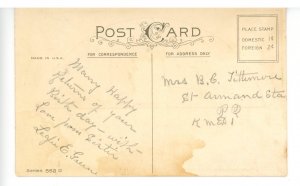 POST CARD
FOR CORRESPONDENCE
FOR ADDRESS ONLY
PLACE STAMP
DOMESTIC 1¢
FOREIGN 2¢
MADE IN U.S.A.
Many Happy
Return of your
Birth day - with
Love from Sister
E. Green
Mrs B. C. Tittemore
St Armand Sta
P.Q
R M
SERIES 662 D